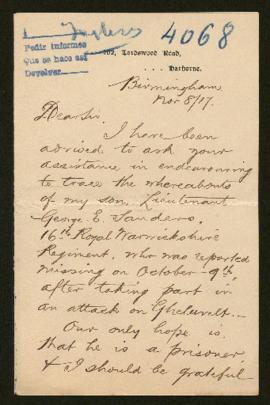 Ingleses
4068
Pedir informes
Que se haga así
Devolver
Road,
Harborne.
Birmingham
Nov 8/17.
Dear Sir.
I have been
advised to ask your
assistance in endeavouring
to trace the whereabouts
of my son, Lieutenant
George E. Sanders.
16th Royal Warwickshire
Regiment, who was reported
missing on October 9th
after taking part in
an attack on Gheluvelt.
Our only hope is
that he is a prisoner
& I should be grateful